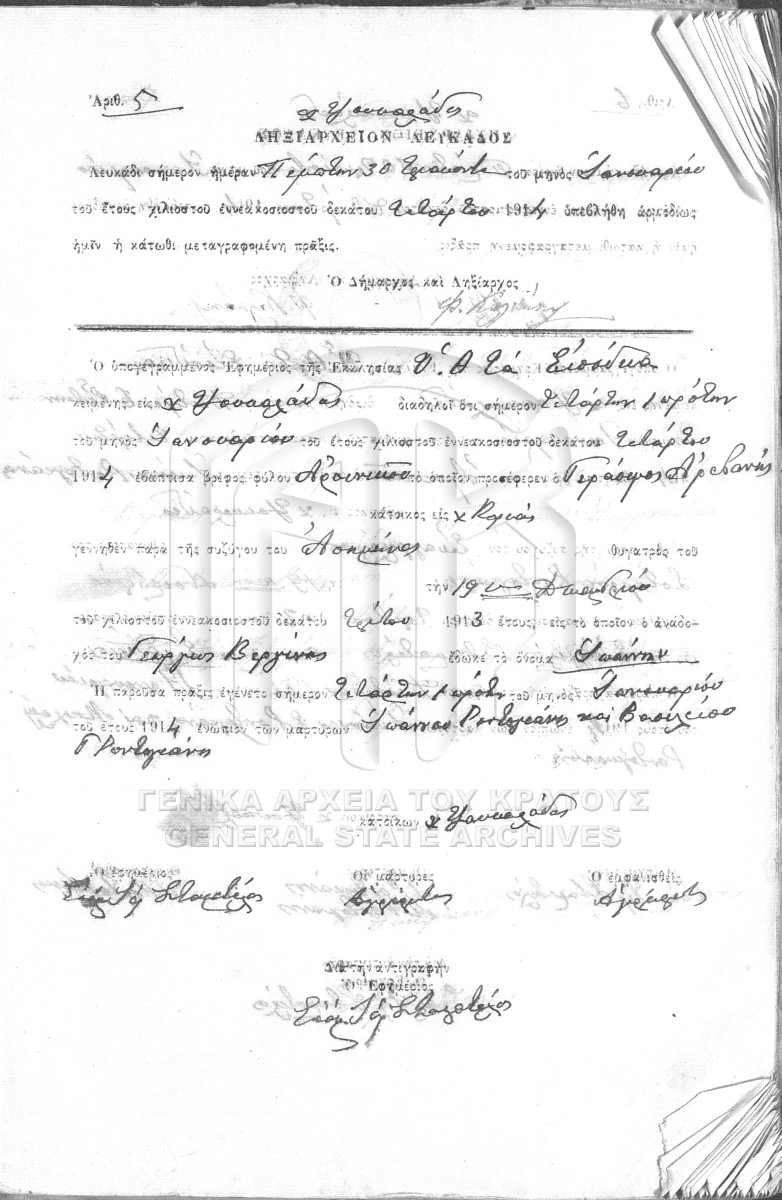 Ἀριθ. 5
ΛΗΞΙΑΡΧΕΙΟΝ ΛΕΥΚΑΔΟΣ
Λευκάδι σήμερον ἡμέραν Πέμπτην 30 τριακοστὴ τοῦ μηνὸς Ἰανουαρίου
τοῦ ἔτους χιλιοστοῦ ἐννεακοσιοστοῦ δεκάτου τετάρτου 1914 ὑπεβλήθη ἁρμοδίως
ἡμῖν ἡ κάτωθι μεταγραφομένη πρᾶξις.
Ὁ Δήμαρχος καὶ Ληξίαρχος
Ὁ ὑπογεγραμμένος Ἐφημέριος τῆς Ἐκκλησίας Υ. Θ. τὰ Εἰσόδεια
κειμένης εἰς χ διαδηλοῖ ὅτι σήμερον τετάρτην πρώτην
τοῦ μηνὸς Ἰανουαρίου τοῦ ἔτους χιλιοστοῦ ἐννεακοσιοστοῦ δεκάτου τετάρτου
1914 ἐβάπτισα βρέφος φύλου Ἀρσενικοῦ τὸ ὁποῖον προσέφερεν ὁ Γεράσιμος Ἀρβανίτης
κάτοικος εἰς χ
γεννηθὲν παρὰ τῆς συζύγου του Ἀσημίνας θυγατρὸς τοῦ
τὴν 19 Δεκεμβρίου
τοῦ χιλιοστοῦ ἐννεακοσιοστοῦ δεκάτου τρίτου 1913 ἔτους, εἰς τὸ ὁποῖον ὁ ἀνάδο-
χός του Γεώργιος Βεργίνης ἔδωκε τὸ ὄνομα Ἰωάννην
Ἡ παροῦσα πρᾶξις ἐγένετο σήμερον τετάρτην πρώτη τοῦ μηνὸς Ἰανουαρίου
τοῦ ἔτους 1914 ἐνώπιον τῶν μαρτύρων Ἰωάννου Ροντογιάνη καὶ Βασιλείου
Γ Ροντογιάνη
ΓΕΝΙΚΑ ΑΡΧΕΙΑ ΤΟΥ ΚΡΑΤΟΥΣ
κατοίκων χ
GENERAL STATE ARCHIVES
Ὁ ἐφημέριος Οἱ μάρτυρες Ὁ ἐμφανισθεὶς
Ἀγράμματος
Διὰ τὴν ἀντιγραφὴν
Ὁ Ἐφημέριος